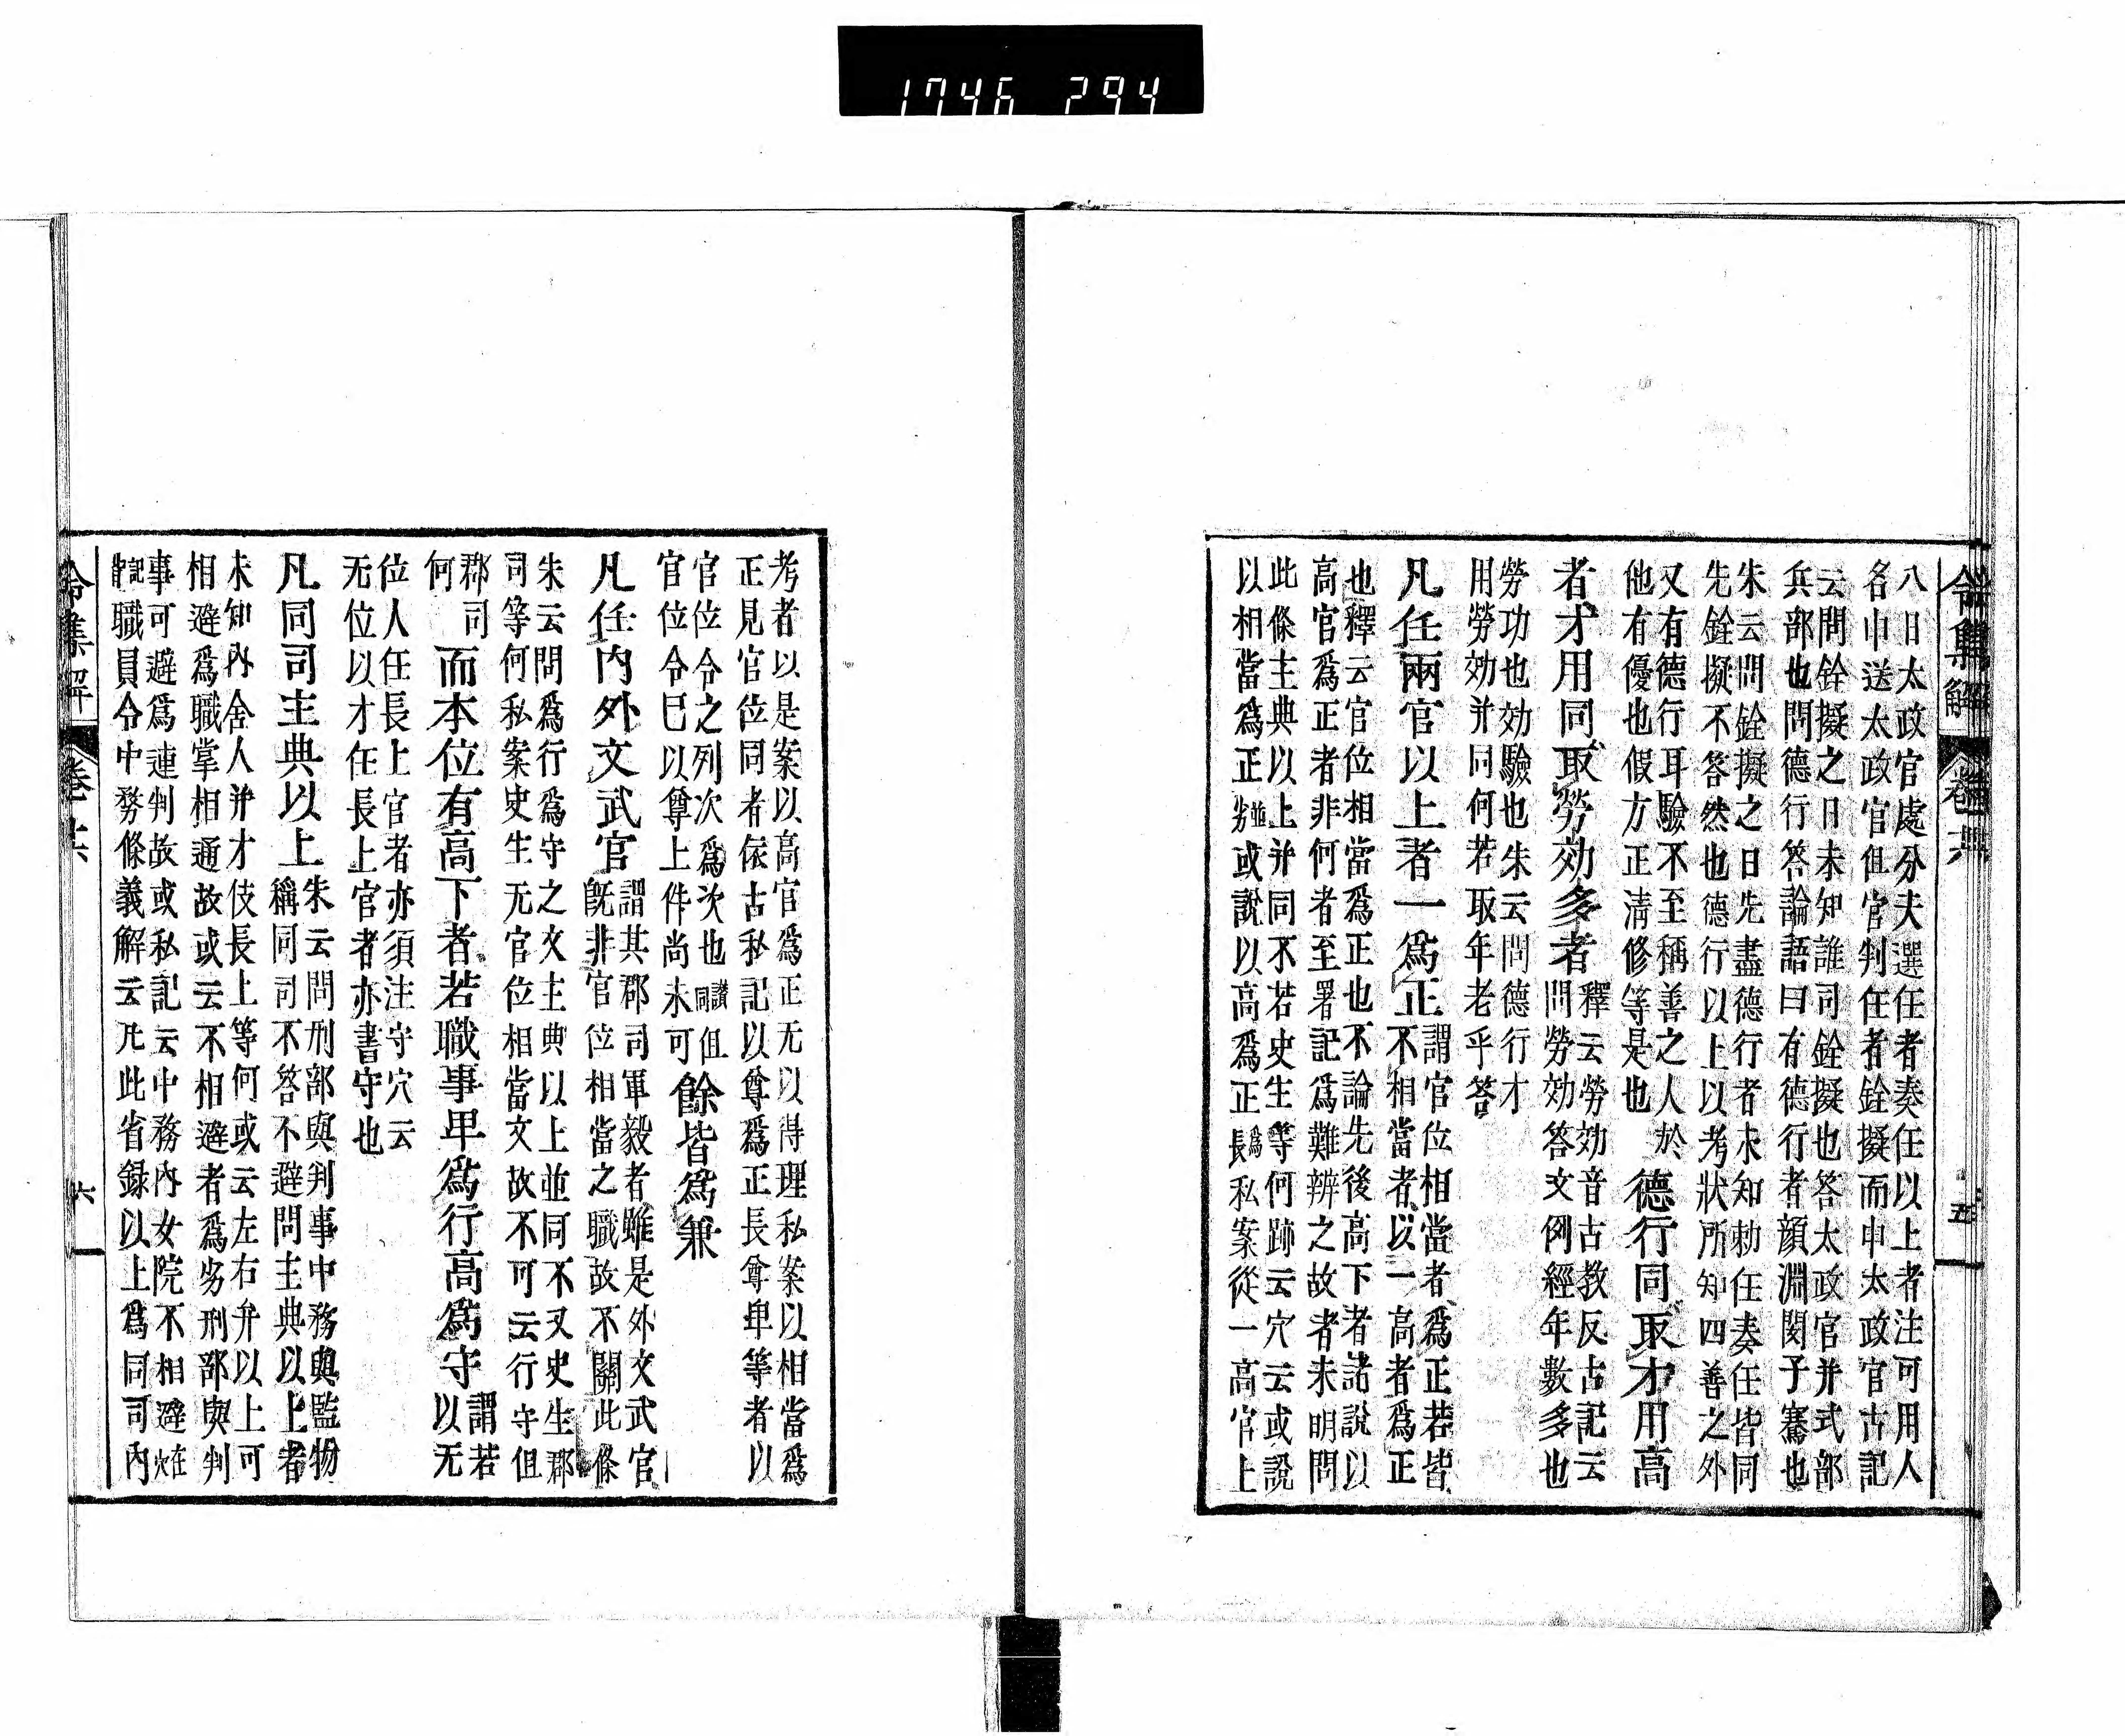 1746 294
令集解 卷十六 五
八日太政官處分夫選任者奏任以上者注可用人
名申送太政官但官判任者銓擬而申太政官古記
云問銓擬之日未知誰司銓擬也答太政官并式部
兵部也問德行答論語曰有德行者顔淵閔子騫也
朱云問銓擬之日先盡德行者未知勅任奏任皆同
先銓擬不答然也德行以上以考狀所知四善之外
又有德行耳驗不至稱善之人於
他有優也假方正清修等是也
德行同取才用高
者才用同取勞効多者
釋云勞効音古教反古記云
問勞効答文例經年數多也
勞功也効驗也朱云問德行才
用勞効并同何若取年老乎答
凡任兩官以上者一爲正
謂官位相當者爲正若皆
不相當者以一高者爲正
也釋云官位相當爲正也不論先後高下者諸説以
高官爲正者非何者至署記爲難辨之故者未明問
此條主典以上并同不若史生等何跡云穴云或説
以相當爲正並劣或説以高爲正爲長私案從一高官上
考者以是案以高官爲正无以得理私案以相當爲
正見官位同者依古私記以尊爲正長尊卑等者以
官位令之列次爲次也讃同但
官位令已以尊上件尚未可
餘皆爲兼
凡任内外文武官
謂其郡司軍毅者雖是外文武官
既非官位相當之職故不關此條
朱云問爲行爲守之文主典以上並同不又史生郡
司等何私案史生无官位相當文故不可云行守但
郡司
何
而本位有高下者若職事卑爲行高爲守
謂若
以无
位人任長上官者亦須注守穴云
无位以才任長上官者亦書守也
凡同司主典以上
朱云問刑部與判事中務與監物
稱同司不答不避問主典以上者
未知内舍人并才伎長上等何或云左右弁以上可
相避爲職掌相通故或云不相避者爲劣刑部與判
事可避爲連判故或私記云中務内女院不相避在穴
記背職員令中務條義解云凡此省録以上爲同司内
令集解 卷十六 六